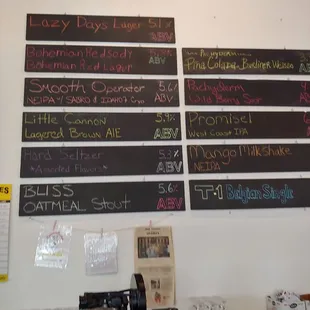 Lazy Days Lager 5.1%
ABV
Bohemian Redsody
Bohemian Red Lager
ABV
Smooth Operator 5.6%
NEIPA w/ SABRO & IDAHO7
ABV
Little Cannon 5.9%
Lagered Brown ALE
ABV
Hard Seltzer 5%
*Assorted Flavors*
ABV
BLISS 5.6%
OATMEAL Stout
ABV
Piña Colada Berliner Weisse
Pachyderm
Promise!
West Coast IPA
Mango Milkshake
NEIPA
T-1 Belgian Single